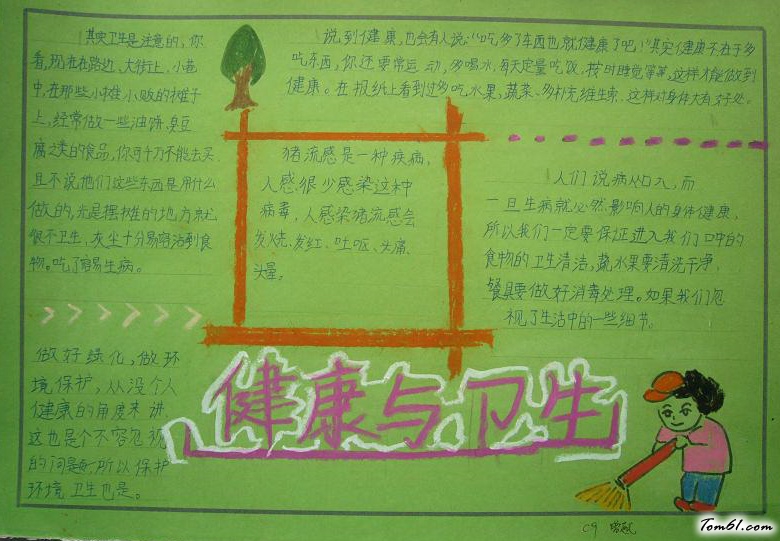 其实卫生是注意的,你
看,现在在路边、大街上、小巷
中,在那些小摊小贩的摊子
上,经常做一些油饼、臭豆
腐之类的食品,你可千万不能去买
且不说他们这些东西是用什么
做的,光是摆摊的地方就
很不卫生,灰尘十分易容沾到食
物。吃了容易生病。
说到健康,也会有人说:“吃多了东西也就健康了吧!”其实健康不在于多
吃东西,你还要常运动,多喝水,每天定量吃饭,按时睡觉等等,这样才能做到
健康。在报纸上看到过多吃水果,蔬菜、多补充维生素,这样对身体大有好处。
猪流感是一种疾病,
人感很少感染这种
病毒,人感染猪流感会
发烧、发红、吐呕、头痛、
头晕。
人们说病从口入,而
一旦生病就必然影响人的身体健康,
所以我们一定要保证进入我们口中的
食物的卫生清洁,蔬水果要清洗干净,
餐具要做好消毒处理。如果我们忽
视了生活中的一些细节。
做好绿化,做环
境保护,从没个人
健康的角度来讲,
这也是个不容忽视
的问题,所以保护
环境卫生也是。
健康与卫生
Tom61.com